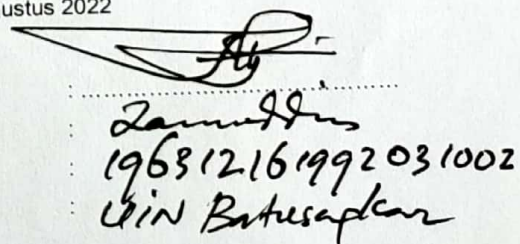 ustus 2022
:
: Zainuddin
: 196312161992031002
: UIN Batusangkar